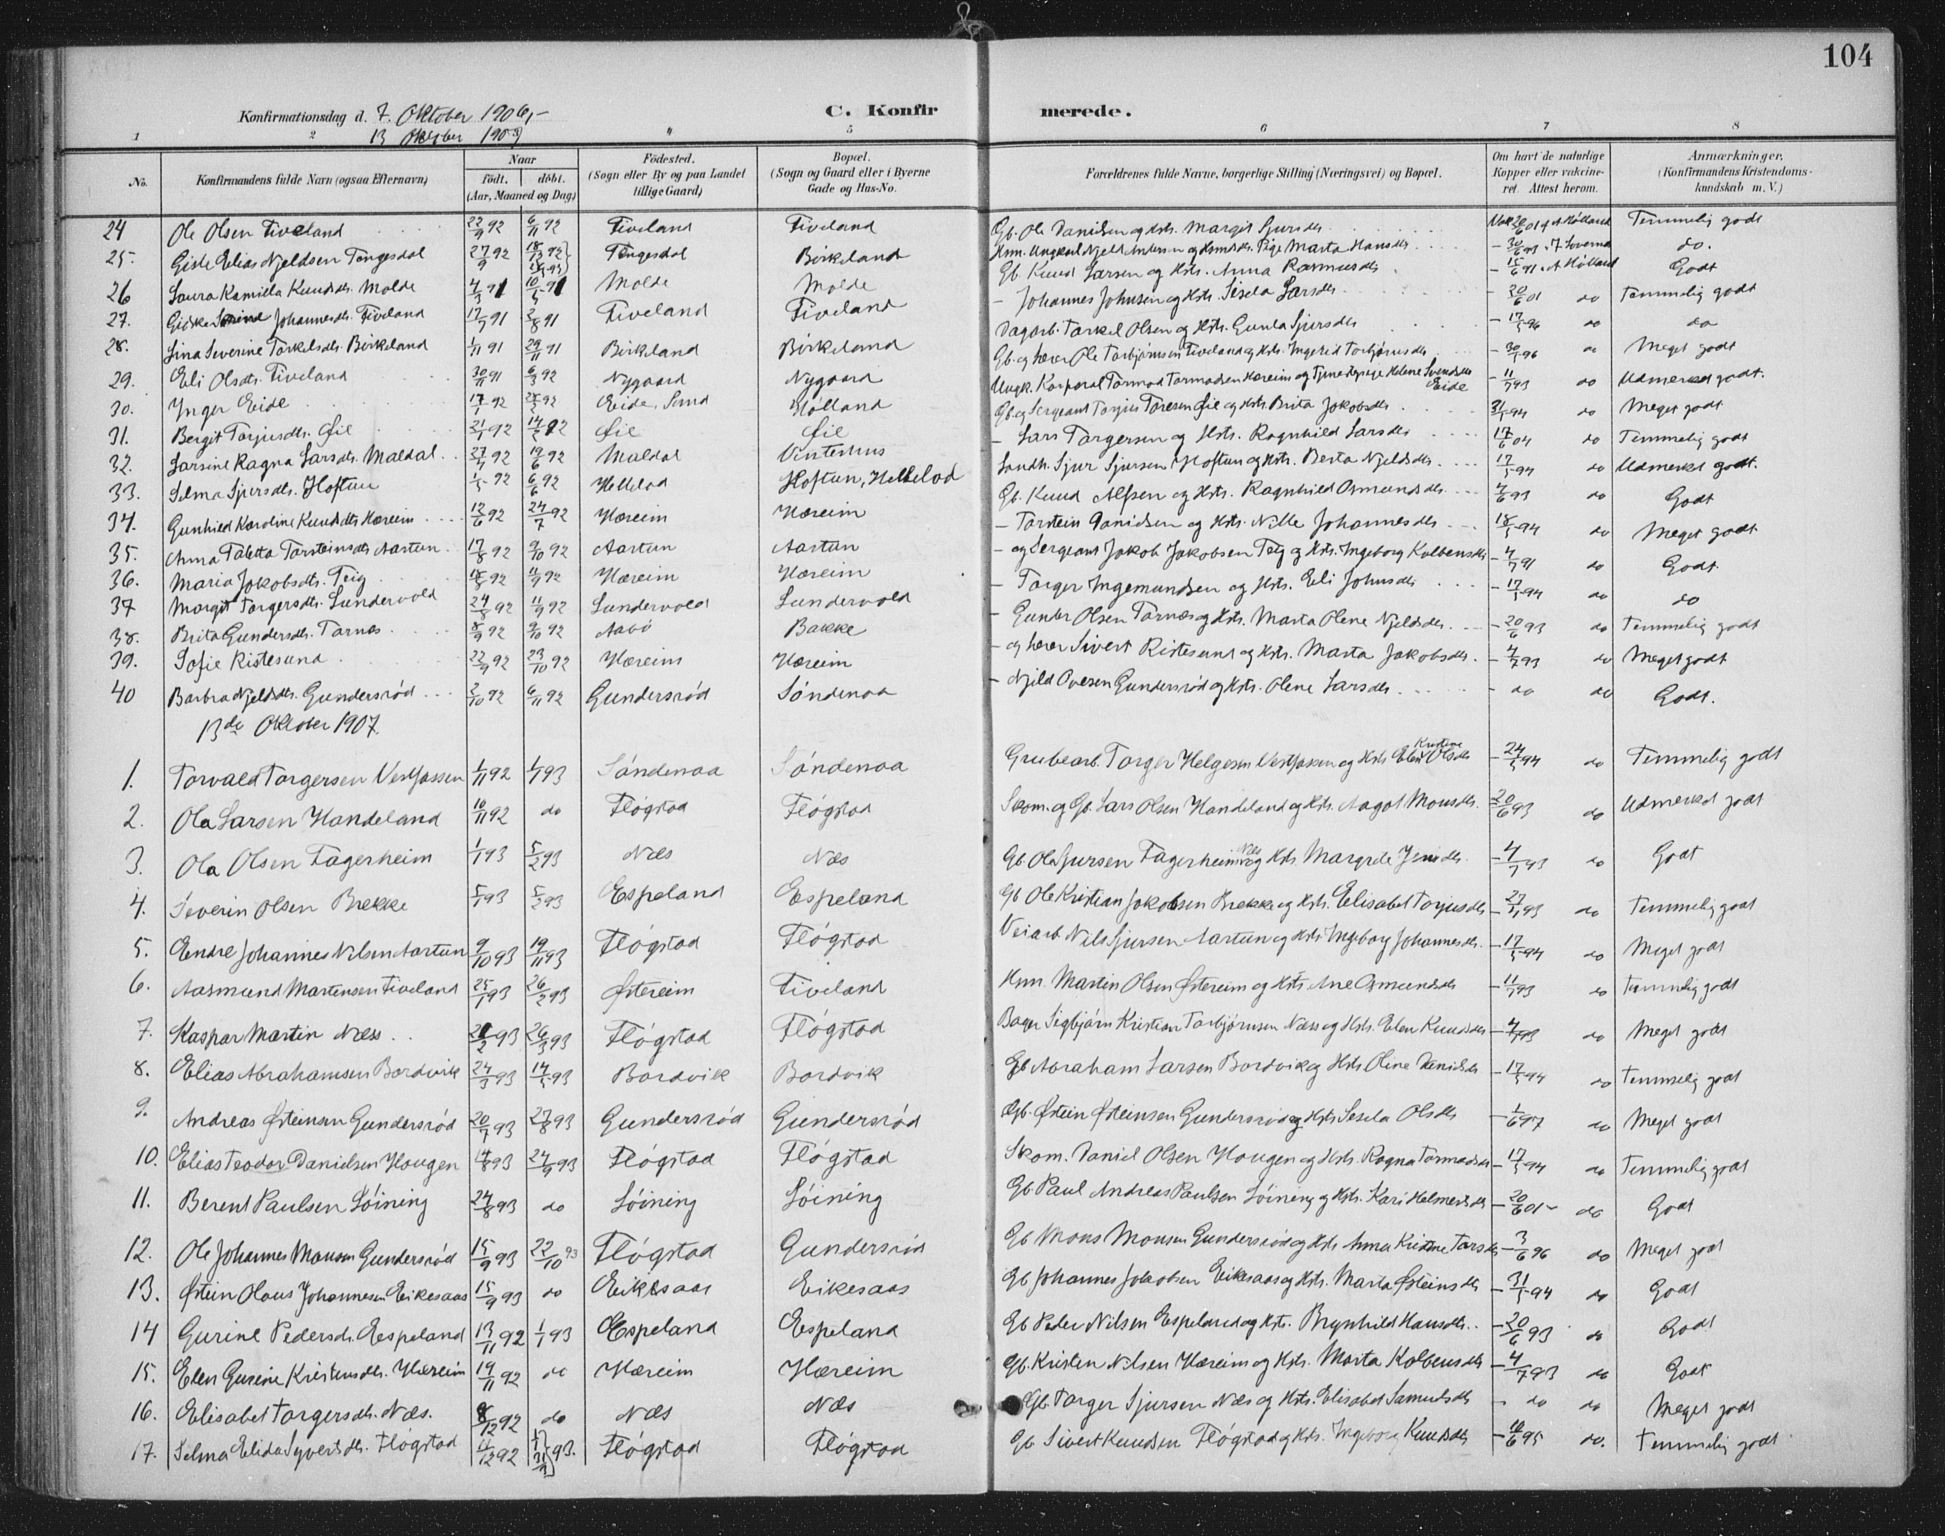 104
Konfirmationsdag d. 7. Oktober 1906,-
13 Oktober 1907
C. Konfirmerede.
1 2 " 5 6 7 8
No. Konfirmandens fulde Navn (ogsaa Efternavn) Naar født. døbt. (Aar, Maaned og Dag) Fødested. (Sogn eller By og paa Landet tillige Gaard) Bopæl. (Sogn og Gaard eller i Byerne Gade og Hus-No. Forældrenes fulde Navne, borgerlige Stilling (Næringsvei) og Bopæl. Om havt de naturlige Kopper eller vakcineret. Attest herom. Anmærkninger. (Konfirmandens Kristendomskundskab m. V.)
24 Ole Olsen Tiveland 22/9 92 6/11 92 Tiveland Tiveland Gb. Ole Danielsen og Hstr. Margit Sjursdtr. Temmelig godt
25. Elias Njeldsen Tengesdal 27/9 92 Tengesdal Birkeland Marta Hansdtr. do.
26 Laura Kamilla Knudsdtr. Molde 4/3 91 10/5 91 Molde Molde Gb. Knud Larsen og Hstr. Anna Rasmusdtr. 15/6 91 Godt
27. Johannesdtr. Tiveland 17/7 91 2/8 91 Tiveland Tiveland - Johannes Johnsen og Hstr. Sisela Larsdtr. 20/6 01 do Temmelig godt
28. Lina Severine Torkelsdtr. Birkeland 1/11 91 29/11 91 Birkeland Birkeland Dagarb. Torkel Olsen og Hstr. Gunla Sjursdtr. 17/5 96 do do
29. Eli Olsdtr. Tiveland 30/11 91 6/3 92 Nygaard Nygaard Gb. og lærer Ole Torbjørnsen Tiveland og Hstr. Ingerid Torbjørnsdtr. 30/5 96 do Meget godt
30. Inger Eide 17/1 92 92 Eide, Sand Hølland Ungk. Korporal Tormod Tormodsen Hæreim og Helene Svendsen Eide 11/7 93 do Udmerket godt.
31. Bergit Torjusdtr. Øie 21/1 92 14/2 92 Øie Øie Gb. og Sergeant Torjus Toresen Øie og Hstr. Brita Jakobsdtr. 31/5 94 do Meget godt
32. Larsine Ragna Larsdtr. Maldal 27/4 92 19/6 92 Maldal Vinterhus - Lars Torgersen og Hstr. Ragnhild Larsdtr. 17/6 04 do Temmelig godt
33. Selma Sjursdtr. Hoftun 1/5 92 6/6 92 Hellelad Hoftun, Hellelad Landh. Sjur Sjursen Hoftun og Hstr. Berta Njeldsdtr. 17/5 94 do Udmerket godt.
34. Gunhild Karoline Knudsdtr. Hæreim 12/6 92 24/7 92 Hæreim Hæreim Gb. Knud Alfsen og Hstr. Ragnhild Osmundsdtr. 4/6 93 do Godt
35. Anna Taletta Torsteinsdtr. Aartun 17/8 92 9/10 92 Aartun Aartun - Torstein Danielsen og Hstr. Nille Johannesdtr. 18/5 94 do Meget godt
36. Maria Jakobsdtr. Teig 18/8 92 11/9 92 Hæreim Hæreim - og Sergeant Jakob Jakobsen Teig og Hstr. Ingeborg Kolbensdtr. 4/7 91 do Godt.
37 Margit Torgersdtr. Sundervold 24/8 92 11/9 92 Sundervold Sundervold - Torger Ingemundsen og Hstr. Eli Johnsdtr. 17/5 94 do do
38. Brita Gundersdtr. Tornæs 8/9 92 9/10 92 Aabø Bakke - Gunder Olsen Tornæs og Hstr. Marta Olene Njeldsdtr. 20/6 93 do Temmelig godt
39. Sofie Ristesund 22/9 92 23/10 92 Hæreim Hæreim - og lærer Sivert Ristesund og Hstr. Marta Jakobsdtr. 4/7 93 do Meget godt
40 Barbra Njeldsdtr. Gundersrød 2/10 92 6/11 92 Gundersrød Søndenaa - Njeld Ovesen Gundersrød og Hstr. Olene Larsdtr. do do Godt.
13de Oktober 1907.
1. Torvald Torgersen Vestfossen 1/11 92 1/1 93 Søndenaa Søndenaa Grubearb. Torger Helgesen Vestfossen og Hstr. Elen Kristine Olsdtr. 24/5 94 do Temmelig godt
2. Ola Larsen Handeland 10/11 92 do Fløgstad Fløgstad Skom. og Gb. Lars Olsen Handeland og Hstr. Aagot Monsdtr. 20/6 93 do Udmerket godt
3. Ola Olsen Fagerheim 1/1 93 5/2 93 Næs Næs Gb. Ola Sjursen Fagerheim Næs og Hstr. Margrete 4/7 93 do Godt
4. Severin Olsen Brekke 5/1 93 5/2 93 Espeland Espeland Gb. Ole Kristian Jakobsen Brekke og Hstr. Elisabet Torjusdtr. 27/7 93 do Temmelig godt
5. Endre Johannes Nilsen Aartun 9/10 93 19/11 93 Fløgstad Fløgstad Veiarb. Nils Sjursen Aartun og Hstr. Ingeborg Johannesdtr. 17/5 94 do Meget godt
6. Aasmund Martensen Tiveland 25/1 93 26/2 93 Østereim Tiveland Hsm. Martin Olsen Østereim og Hstr. Ane Osmundsdtr. 11/7 93 do Temmelig godt
7. Kaspar Martin Næss 93 26/3 93 Fløgstad Fløgstad Bager Sigbjørn Kristian Torbjørnsen Næss og Hstr. Elen Knudsdtr. 4/7 93 do Meget godt
8. Elias Abrahamsen Bordvik 24/3 93 14/5 93 Bordvik Bordvik Gb. Abraham Larsen Bordvik og Hstr. Oline Danielsdtr. 17/5 94 do Temmelig godt
9. Andreas Østeinsen Gundersrød 20/7 93 27/8 93 Gundersrød Gundersrød Gb. Østein Østeinsen Gundersrød og Hstr. Sesela Olsdtr. 1/6 97 do Meget godt
10. Elias Teodor Danielsen Hougen 14/8 93 24/9 93 Fløgstad Fløgstad Skom. Daniel Olsen Hougen og Hstr. Ragna Tormodsdtr. 17/5 94 do Temmelig godt
11. Berent Paulsen Løining 24/8 93 do Løining Løining Gb. Paul Andreas Paulsen Løining og Hstr. Kari Helmersdtr. 20/6 01 do Godt
12. Ole Johannes Monsen Gundersrød 15/9 93 22/10 93 Fløgstad Gundersrød Gb. Mons Monsen Gundersrød og Hstr. Anna Kristine Larsdtr. 3/6 96 do Meget godt
13. Østein Olaus Johannesen Eikesaas 15/9 93 do Eikesaas Eikesaas Gb. Johannes Jakobsen Eikesaas og Hstr. Marta Østeinsdtr. 31/5 94 do Godt
14 Gurine Pedersdtr. Espeland 13/11 92 1/1 93 Espeland Espeland Gb. Peder Nilsen Espeland og Hstr. Brynhild Hansdtr. 20/6 93 do Godt
15. Elen Gurine Kristensdtr. Hæreim 19/11 92 do Hæreim Hæreim Gb. Kristen Nilsen Hæreim og Hstr. Marta Kolbensdtr. 4/7 93 do Godt
16. Elisabet Torgersdtr. Næs. 8/12 92 do Næs Næs Gb. Torger Sjursen Næs og Hstr. Elisabet Samuelsdtr. do do Meget godt
17. Selma Elida Syvertsdtr. Fløgstad 11/12 92 93. Fløgstad Fløgstad Gb. Sivert Knudsen Fløgstad og Hstr. Ingeborg Knudsdtr. 95 do. Temmelig godt